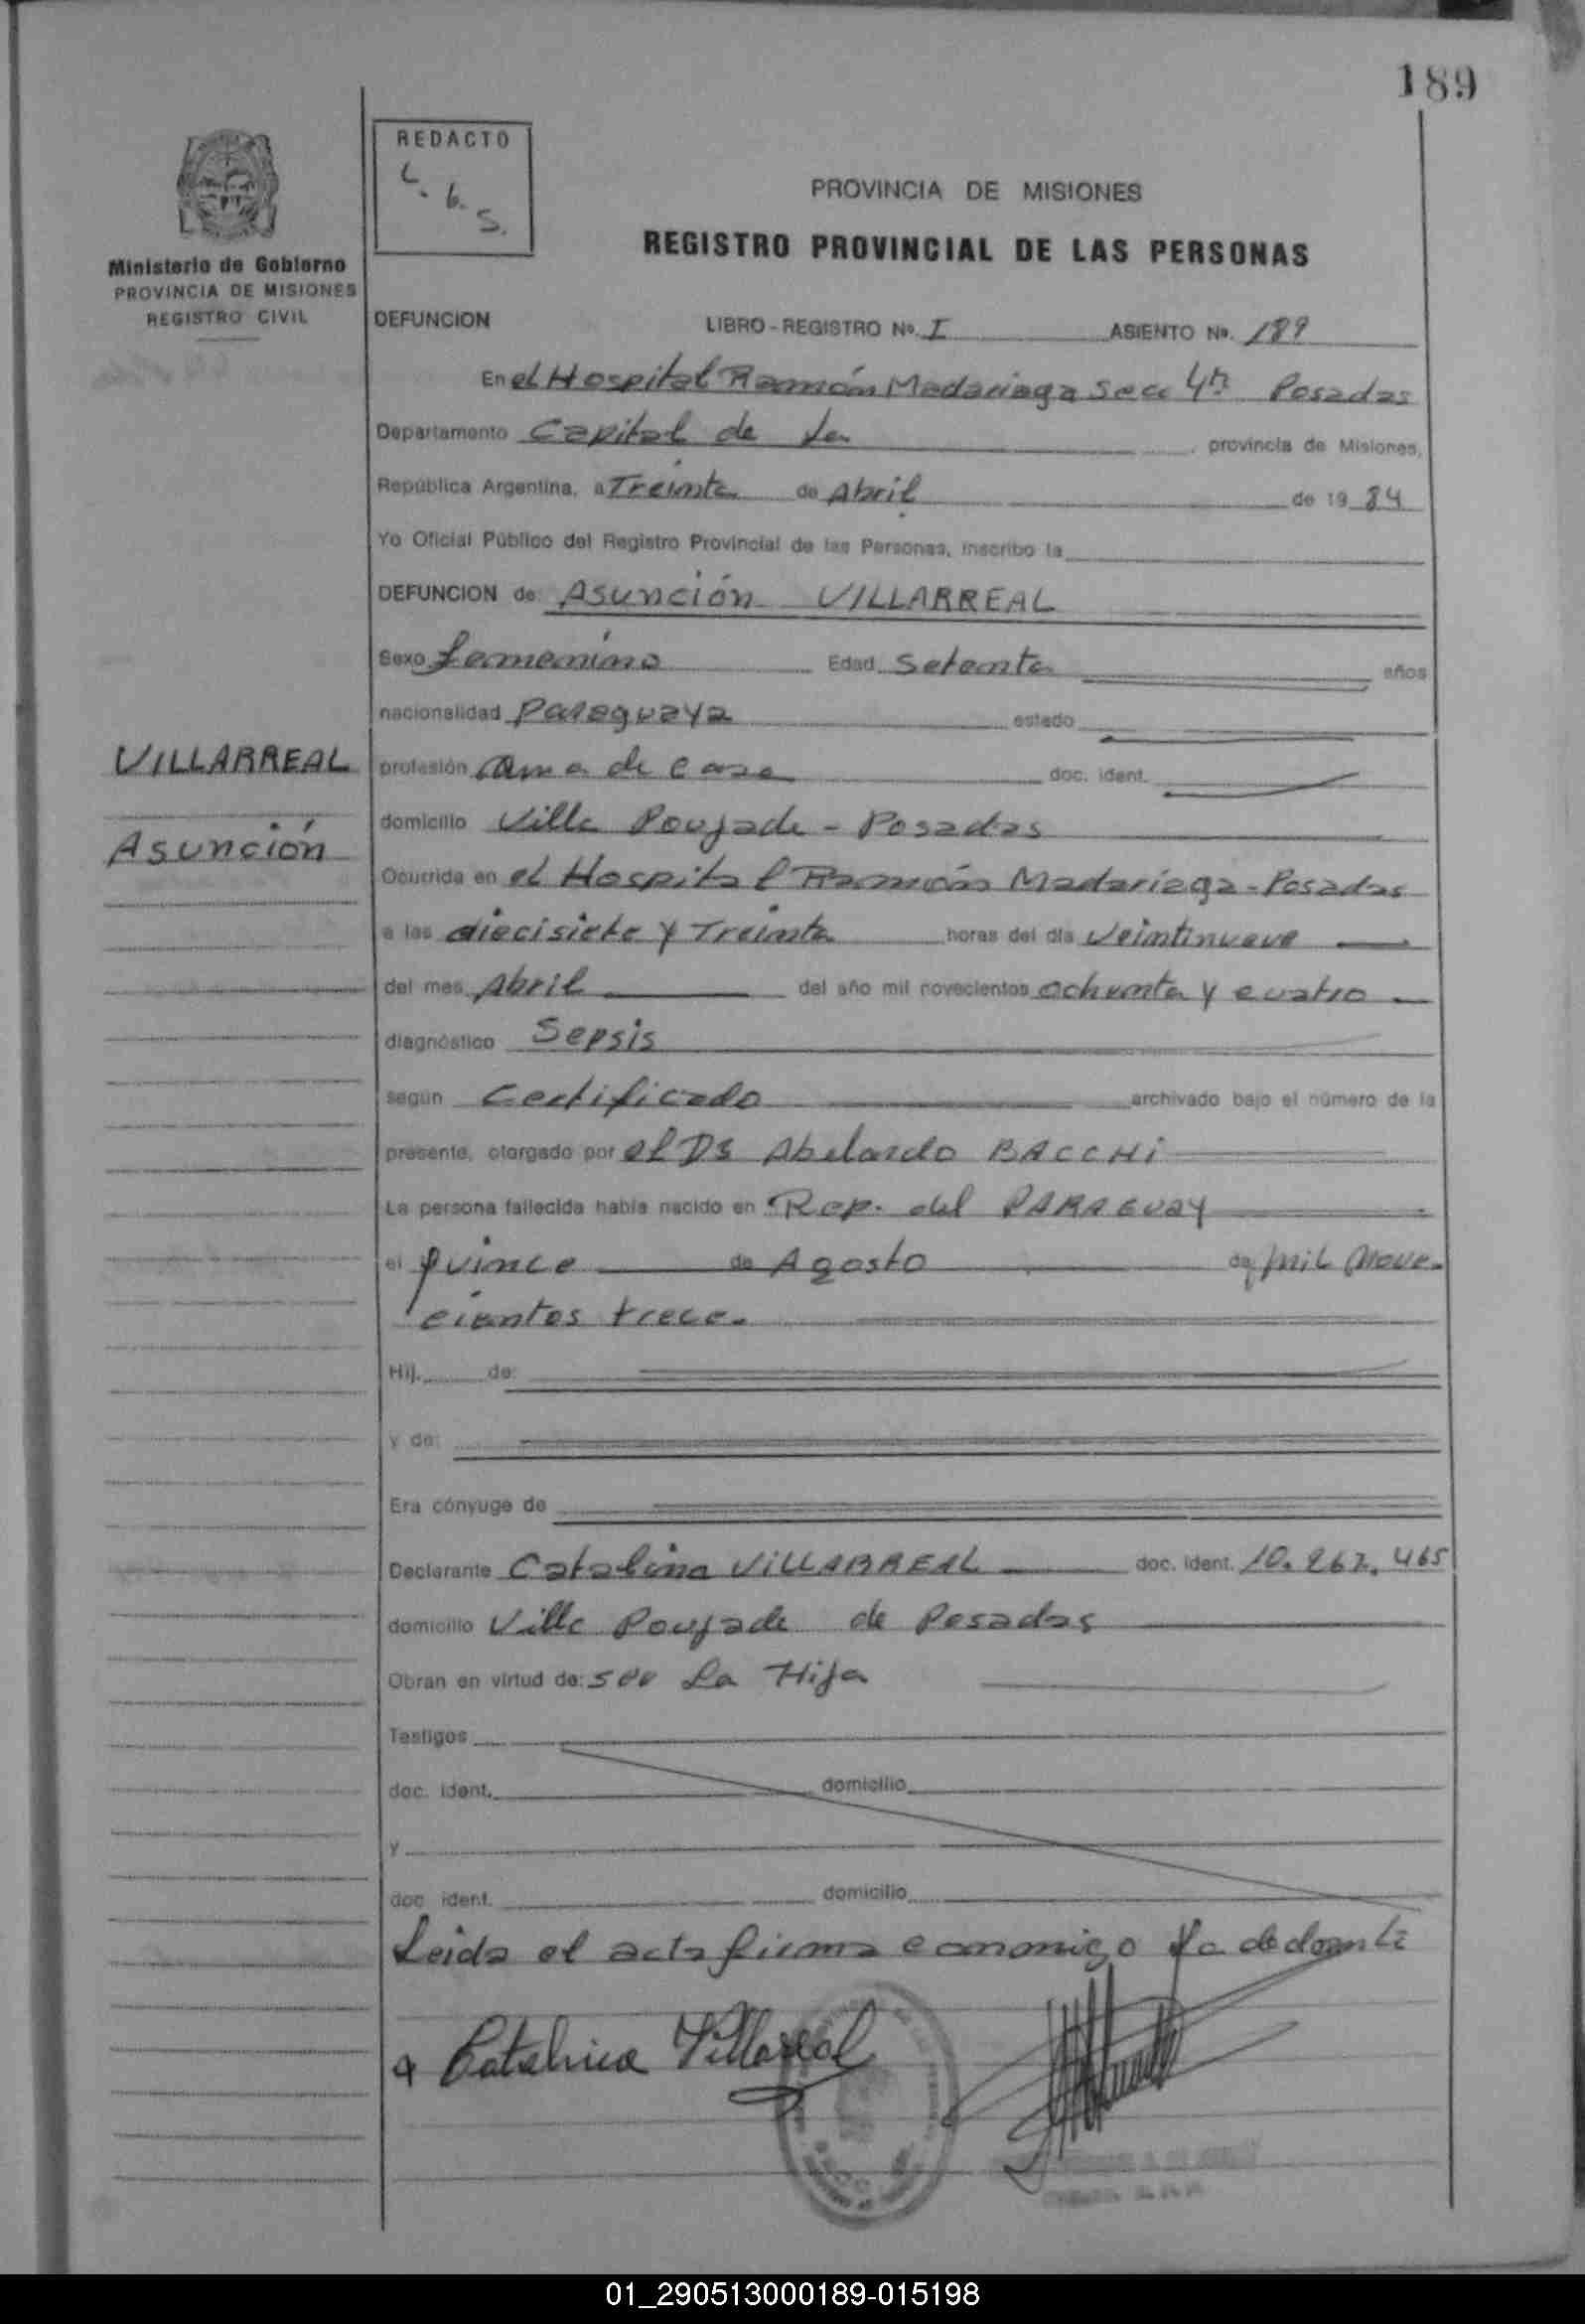 189
REDACTO
L. b. S.
PROVINCIA DE MISIONES
REGISTRO PROVINCIAL DE LAS PERSONAS
Ministerio de Gobierno
PROVINCIA DE MISIONES
REGISTRO CIVIL
DEFUNCION LIBRO-REGISTRO Nº. I ASIENTO Nº. 189
En el Hospital Ramón Madariaga Secc 4ta Posadas
Departamento Capital de la provincia de Misiones,
República Argentina, a Treinta de Abril de 19 84
Yo Oficial Público del Registro Provincial de las Personas, inscribo la
DEFUNCION de: Asunción VILLARREAL
Sexo femenino Edad Setenta años
nacionalidad Paraguaya estado
VILLARREAL
Asunción
profesión ama de casa doc. ident.
domicilio Villa Poujade - Posadas
Ocurrida en el Hospital Ramón Madariaga - Posadas
a las diecisiete y Treinta horas del día Veintinueve
del mes Abril del año mil novecientos ochenta y cuatro
diagnóstico Sepsis
según Certificado archivado bajo el número de la
presente, otorgado por el Dr Abelardo BACCHi
La persona fallecida había nacido en Rep. del PARAGUAY
el quince de Agosto de mil nove-
cientos trece.
Hij. de:
y de:
Era cónyuge de
Declarante Catalina VILLARREAL doc. ident. 10.267.465
domicilio Villa Poujade de Posadas
Obran en virtud de: ser La Hija
Testigos
doc. ident. domicilio
y
doc. ident. domicilio
Leida el acta firma conmigo la declarante
Catalina Villareal
01_290513000189-015198